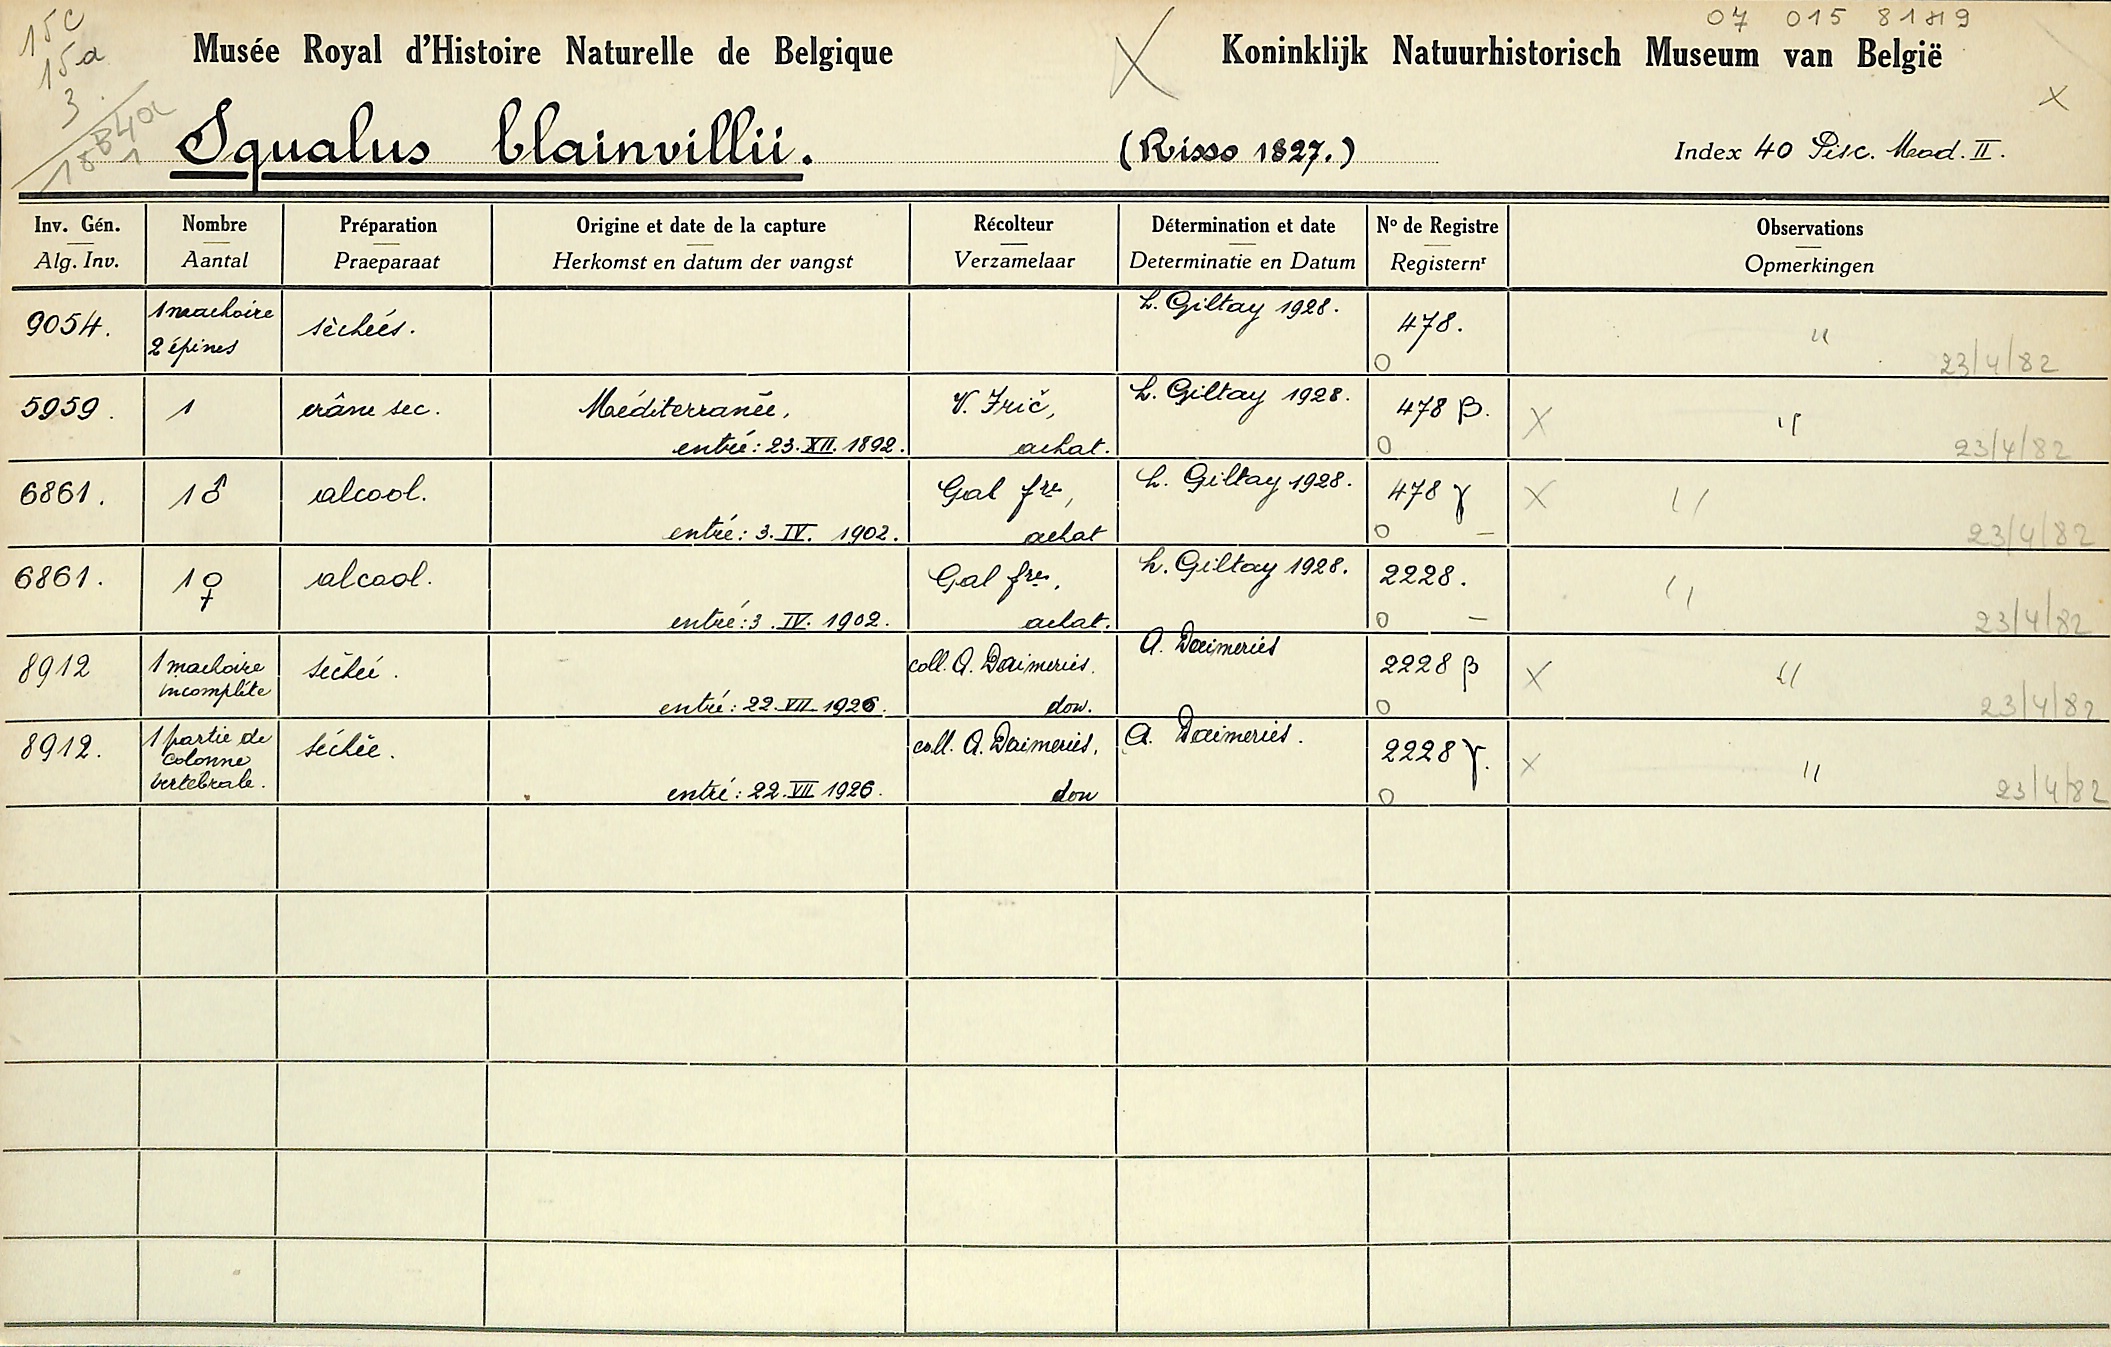 15c
15a
3
07 015 8189
Musée Royal d'Histoire Naturelle de Belgique
X
Koninklijk Natuurhistorisch Museum van België
x
Squalus blainvillii.
(Risso 1827.)
Index 40 Pisc. Mad. II.
Inv. Gén.
Alg. Inv.
Nombre
Aantal
Préparation
Praeparaat
Origine et date de la capture
Herkomst en datum der vangst
Récolteur
Verzamelaar
Détermination et date
Determinatie en Datum
No de Registre
Registernr
Observations
Opmerkingen
9054.
1 machoire
2 épines
séchées.
L. Giltay 1928.
478.
0
"
23/4/82
5959.
1
crâne sec.
Méditerranée,
entré: 23. XII. 1892.
V. Frič,
achat.
L. Giltay 1928.
478 β.
0
X
"
23/4/82
6861.
1 ♂
alcool.
entré: 3. IV. 1902.
Gal fres,
achat
L. Giltay 1928.
478 γ
0 –
X
"
23/4/82
6861.
1 ♀
alcool.
entré: 3. IV. 1902.
Gal fres,
achat.
L. Giltay 1928.
2228.
0 –
"
23/4/82
8912
1 machoire
incomplète
séchée.
entré: 22. VII. 1926.
coll. A. Daimeries.
don.
A. Daimeries
2228 β
0
X
"
23/4/82
8912.
1 partie de
colonne
vertebrale.
séchée.
entré: 22. VII 1926.
coll. A. Daimeries,
don
A. Daimeries.
2228 γ.
0
x
"
23/4/82